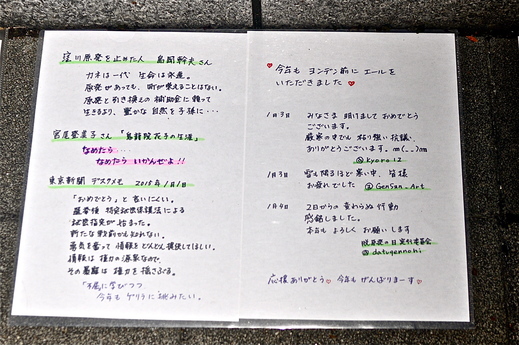 窪川原発を止めた人 島岡幹夫さん
カネは一代 生命は永遠。
原発があっても、町が栄えることはない。
原発と引き換えの補助金に頼って
生きるより、豊かな自然を子孫に・・・
宮尾登美子さん「鳥緒院花子の生涯」
なめたら・・・・
なめたら いかんぜよ!!
東京新聞 デスクメモ 2015年1月1日
「おめでとう」と言いにくい。
藤
特定秘密保護法による
秘密指定が始まった。
新たな戦前かもしれない。
勇気を奮って 情報をどんどん提供してほしい。
情報は 権力の源泉なので、
その暴露は 権力を揺さぶる。
「不屈に学びつつ
今年も ゲリラに挑みたい。
今年も ヨンデン前に エールを
いただきました
1月3日 みなさま 明けまして おめでとう
ございます。
厳寒の中でも 粘り強い抗議、
ありがとうございます。m(__)m
@kyoro12
1月3日 雪も降るほど寒い中、皆様
お疲れでした @GenSan_Art
1月4日 2日からの変わらぬ行動
感銘しました。
本年も よろしく お願いします
脱原発の日実行委員会
@datugennohi
応援ありがとう 今年もがんばりまーす